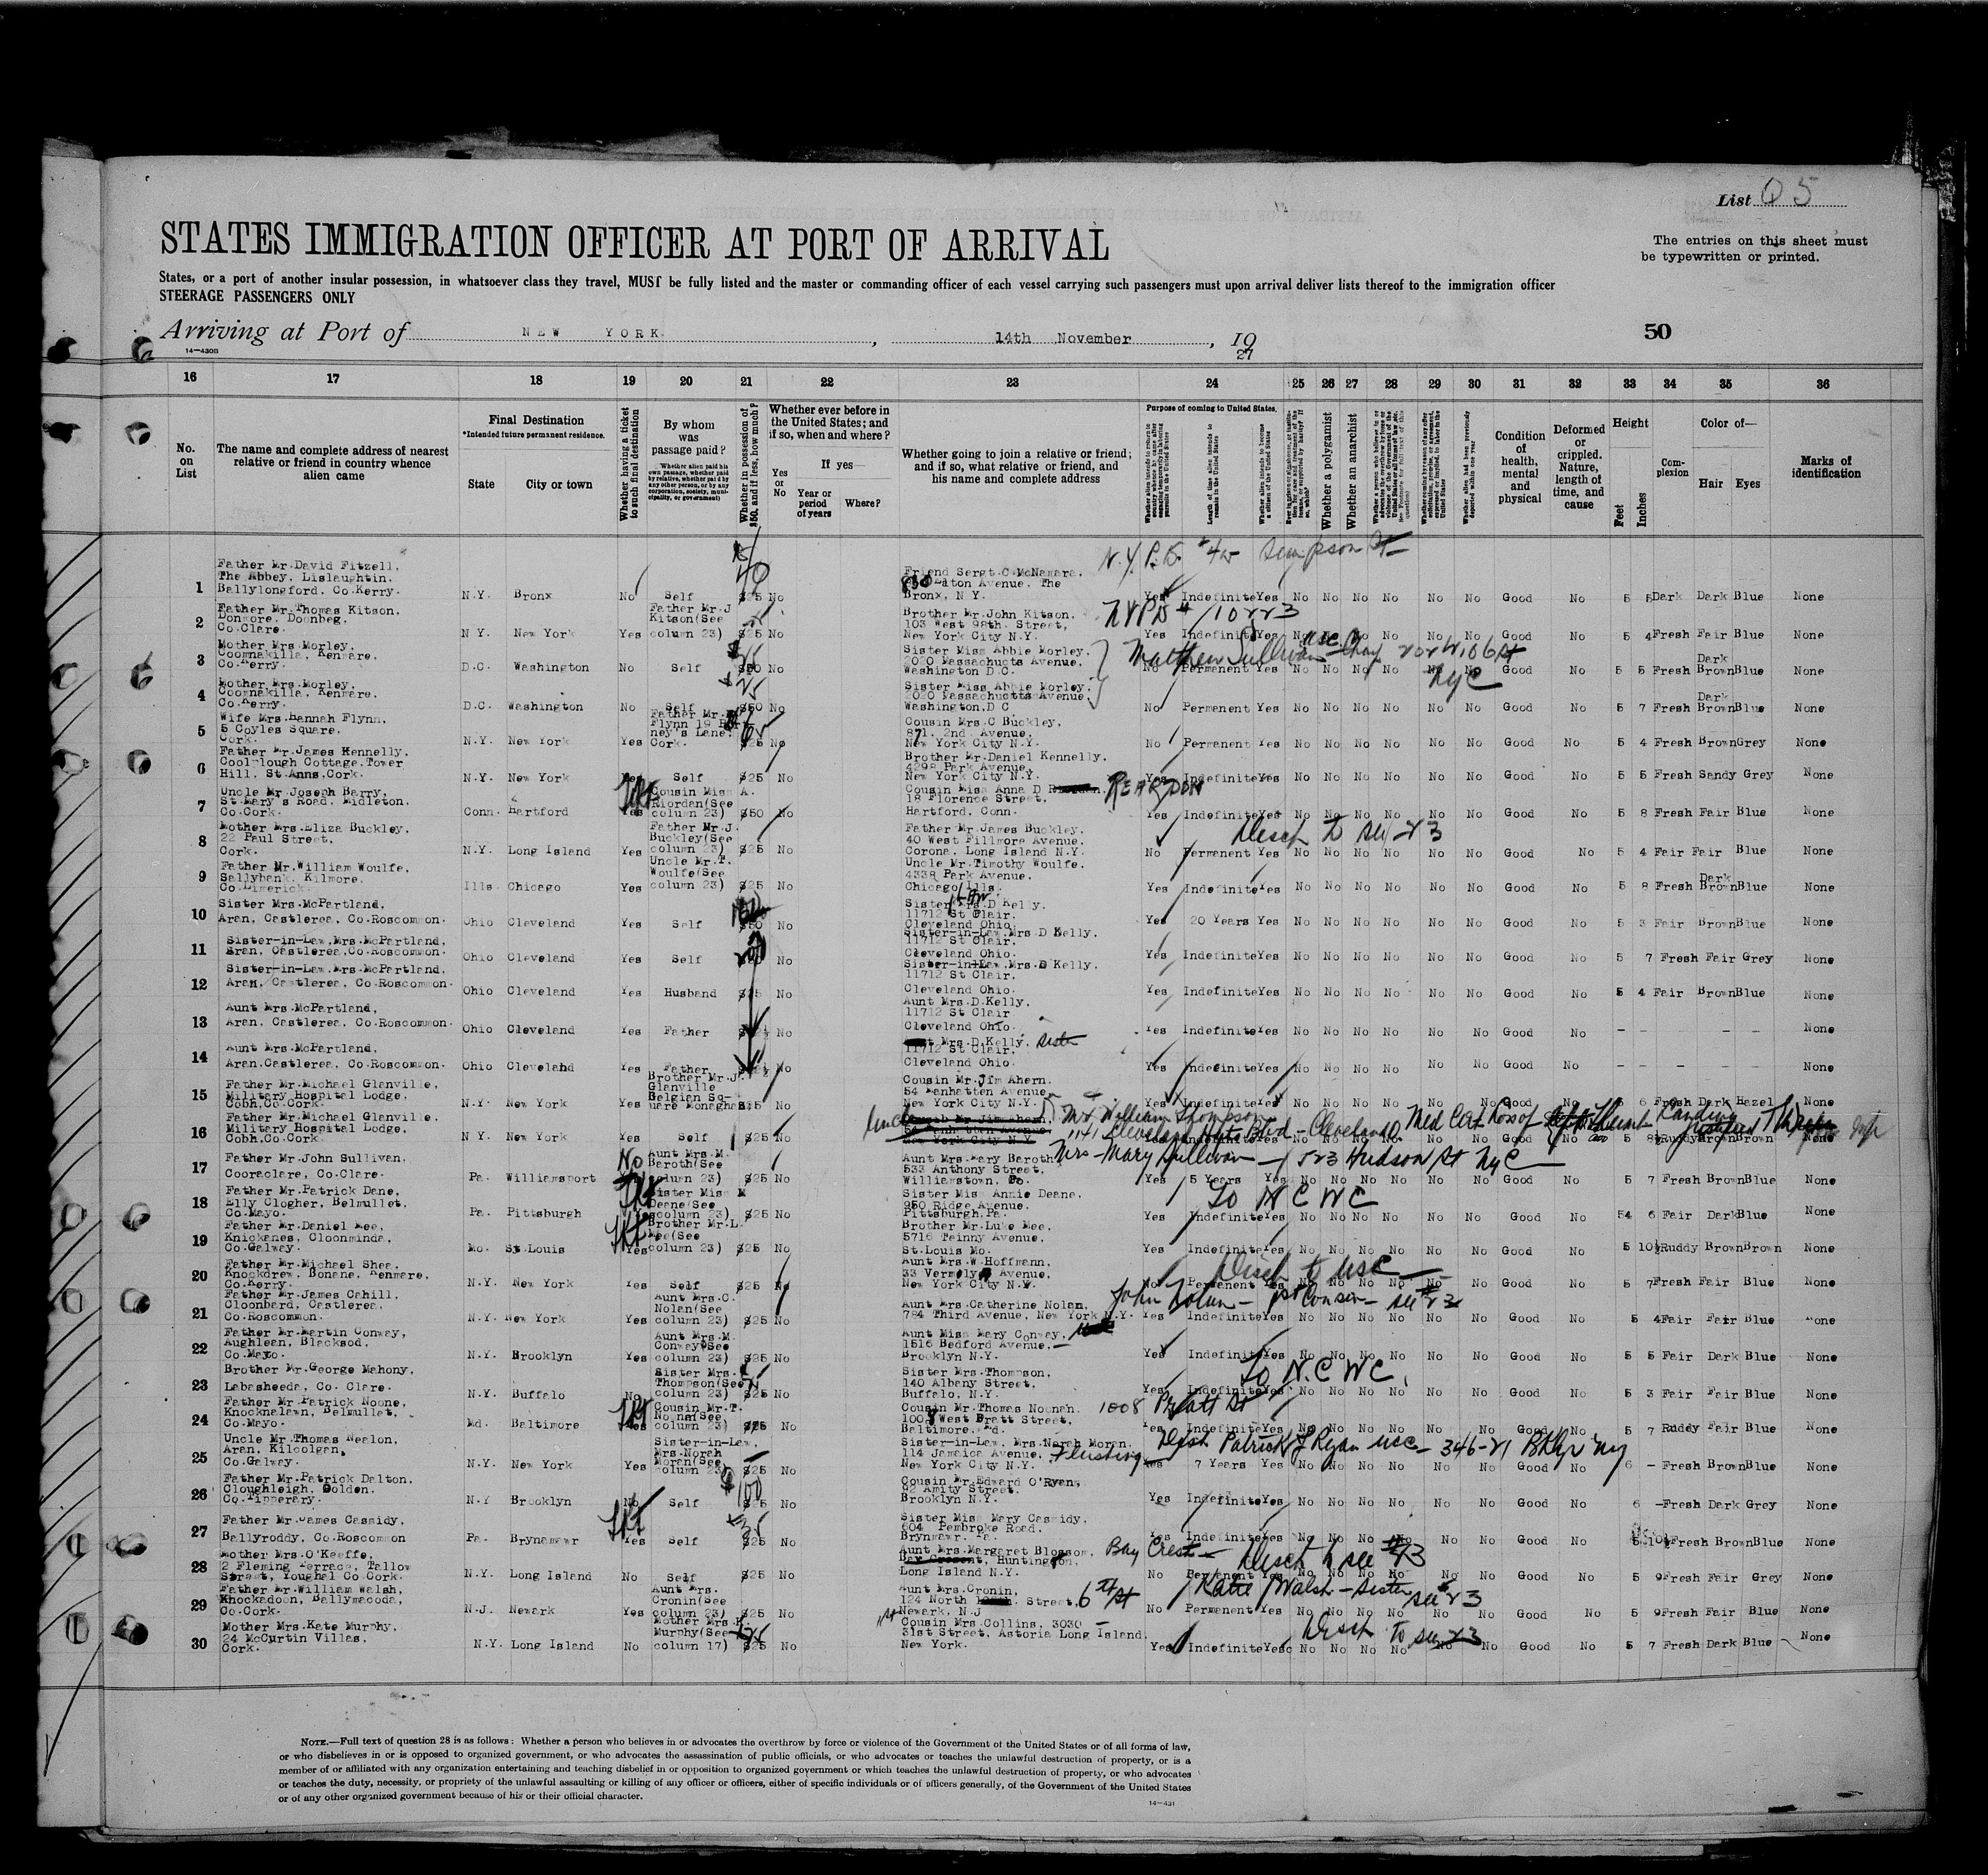 List 05
STATES IMMIGRATION OFFICER AT PORT OF ARRIVAL
The entries on this sheet must
be typewritten or printed.
States, or a port of another insular possession, in whatsoever class they travel, MUST be fully listed and the master or commanding officer of each vessel carrying such passengers must upon arrival deliver lists thereof to the immigration officer
STEERAGE PASSENGERS ONLY
Arriving at Port of NEW YORK, 14th November, 19
27
50
14-430B
16 17 18 19 20 21 22 23 24 25 26 27 28 29 30 31 32 33 34 35 36
No. on List
The name and complete address of nearest relative or friend in country whence alien came
Final Destination
*Intended future permanent residence.
State City or town
Whether having a ticket to such final destination
By whom was passage paid?
Whether in possession of $50, and if less, how much?
Whether ever before in the United States; and if so, when and where?
Yes or No
If yes—
Year or period of years
Where?
Whether going to join a relative or friend; and if so, what relative or friend, and his name and complete address
Purpose of coming to United States.
Length of time alien intends to remain in the United States
Whether a polygamist
Whether an anarchist
Whether alien had been previously deported within one year
Condition of health, mental and physical
Deformed or crippled. Nature, length of time, and cause
Height
Feet Inches
Complexion
Color of—
Hair Eyes
Marks of identification
N.Y.P.D. Simpson St
1 Father Mr.David Fitzell, The Abbey, Lislaughtin, Ballylongford, Co.Kerry. N.Y. Bronx No Self $25 No Friend Sergt.C.McNamara, Avenue, The Bronx, N.Y. Yes Indefinite Yes No No No No No No Good No 5 5 Dark Dark Blue None
2 Father Mr.Thomas Kitson, Donmore, Doonbeg, Co.Clare. N.Y. New York Yes Father Mr.J Kitson(See column 23) $25 No Brother Mr.John Kitson, 103 West 98th. Street, New York City N.Y. Yes Indefinite Yes No No No No No Good No 5 4 Fresh Fair Blue None
3 Mother Mrs.Morley, Coomnakilla, Kenmare, Co.Kerry. D.C. Washington No Self $50 No Sister Miss Abbie Morley, 2020 Massachucts Avenue, Washington D.C. No Permanent Yes No No No No No No Good No 5 5 Fresh Dark Brown Blue None
Matthew Sullivan
NYC
4 Mother Mrs.Morley, Coomnakilla, Kenmare, Co.Kerry. D.C. Washington No Self $50 No Sister Miss Abbie Morley, 2020 Massachuctts Avenue, Washington,D.C No Permanent Yes No No No No No No Good No 5 7 Fresh Dark Brown Blue None
5 Wife Mrs.Hannah Flynn, 5 Coyles Square, Cork. N.Y. New York Yes Cork. $25 No Cousin Mrs.C Buckley, 871. 2nd. Avenue, New York City N.Y. No Permanent Yes No No No No No No Good No 5 4 Fresh Brown Grey None
6 Father Mr.James Kennelly, Coolplough Cottage,Tower Hill, St.Anns.Cork. N.Y. New York Yes Self $25 No Brother Mr.Daniel Kennelly, 4298 Park Avenue, New York City N.Y. Yes Indefinite Yes No No No No No No Good No 5 5 Fresh Sandy Grey None
7 Uncle Mr.Joseph Barry, St.Mary's Road, Midleton, Co.Cork. Conn. Hartford Yes Cousin Miss A. Riordan(See column 23) $50 No Cousin Miss Anna D REARDON 18 Florence Street, Hartford, Conn. Yes Indefinite Yes No No No No No No Good No 5 8 Fresh Fair Blue None
8 Mother Mrs.Eliza Buckley, 22 Paul Street, Cork. N.Y. Long Island Yes Father Mr.J. Buckley(See column 23) $25 No Father Mr.James Buckley, 40 West Fillmore Avenue, Corona, Long Island N.Y. No Permanent Yes No No No No No No Good No 5 4 Fair Fair Blue None
9 Father Mr.William Woulfe, Sallybank, Kilmore, Co.Limerick. Ills. Chicago Yes Uncle Mr.T. Woulfe(See column 23) $25 No Uncle Mr.Timothy Woulfe, 4338 Park Avenue, Chicago Ills. Yes Indefinite Yes No No No No No No Good No 5 8 Fresh Dark Brown Blue None
10 Sister Mrs.McPartland, Aran, Castlerea, Co.Roscommon. Ohio Cleveland Yes Self $50 No Sister Mrs.D Kelly, 11712 St Clair, Cleveland Ohio. Yes 20 Years Yes No No No No No No Good No 5 3 Fair Brown Blue None
11 Sister-in-Law,Mrs.McPartland, Aran, Castlerea,Co.Roscommon. Ohio Cleveland Yes Self No Sister-in-Law,Mrs.D Kelly, 11712 St Clair, Cleveland Ohio. Yes Indefinite Yes No No No No No No Good No 5 7 Fresh Fair Grey None
12 Sister-in-Law,Mrs.McPartland, Aran, Castlerea, Co.Roscommon. Ohio Cleveland Yes Husband $25 No Sister-in-Law,Mrs.D Kelly, 11712 St Clair, Cleveland Ohio. Yes Indefinite Yes No No No No No No Good No 5 4 Fair Brown Blue None
13 Aunt Mrs.McPartland, Aran, Castlerea, Co.Roscommon. Ohio Cleveland Yes Father No Aunt Mrs.D.Kelly, 11712 St Clair Cleveland Ohio. Yes Indefinite Yes No No No No No No Good No – – – – None
14 Aunt Mrs.McPartland, Aran,Castlerea, Co.Roscommon. Ohio Cleveland Yes Father No Mrs.D.Kelly, Sister 11712 St Clair, Cleveland Ohio. Yes Indefinite Yes No No No No No No Good No – – – – None
15 Father Mr.Michael Glanville, Military Hospital Lodge, Cobh,Co.Cork. N.Y. New York Yes Brother Mr.J. Glanville Belgian Square Monaghan. $25 No Cousin Mr.Jim Ahern, 54 Manhatten Avenue, New York City N.Y. Yes Indefinite Yes No No No No No No Good No 5 6 Fresh Dark Hazel None
16 Father Mr.Michael Glanville, Military Hospital Lodge, Cobh.Co.Cork. N.Y. New York Yes Self $25 No Uncle Mr. William Thompson 1141 Cleveland Hts Blvd – Cleveland O. Med Cert Loss of None
17 Father Mr.John Sullivan, Cooraclare, Co.Clare. Pa. Williamsport No Aunt Mrs.M. Baroth(See column 23) $25 No Aunt Mrs.Mary Baroth, 533 Anthony Street, Williamstown, Yes 5 Years Yes No No No No No No Good No 5 7 Fresh Brown Blue None
Mrs – Mary Sullivan – 523 Hudson St NYC
18 Father Mr.Patrick Dane, Elly Clogher, Belmullet, Co.Mayo. Pa. Pittsburgh Sister Miss M Deane(See column 23) $25 No Sister Miss Annie Deane, 950 Ridge Avenue, Pittsburgh,Pa. Yes Indefinite Yes No No No No No No Good No 54 6 Fair Dark Blue None
To N C W C
19 Father Mr.Daniel Mee, Knickanes, Cloonminda, Co.Galway. Mo. St Louis Yes Brother Mr.L. Mee(See column 23) $25 No Brother Mr.Luke Mee, 5716 Teinny Avenue, St.Louis Mo. Yes Indefinite Yes No No No No No No Good No 5 10½ Ruddy Brown Brown None
20 Father Mr.Michael Shea, Knockdrew, Bonane, Kenmare, Co.Kerry. N.Y. New York Yes Self $25 No Aunt Mrs.W.Hoffmann, 33 Avenue, New York City N.Y. No Permanent Yes No No No No No No Good No 5 7 Fresh Fair Blue None
21 Father Mr.James Cahill, Cloonbard, Castlerea, Co.Roscommon. N.Y. New York Yes Aunt Mrs.C. Nolan(See column 23) $25 No Aunt Mrs.Catherine Nolan, 784 Third Avenue, New York N.Y. Yes Indefinite Yes No No No No No No Good No 5 4 Fair Fair Blue None
John Nolan – 1st Cousin – see #23
22 Father Mr.Martin Conway, Aughlean, Blacksod, Co.Mayo. N.Y. Brooklyn Yes Aunt Mrs.M. Conway(See column 23) $25 No Aunt Miss Mary Conway, 1516 Bedford Avenue, Brooklyn N.Y. Yes Indefinite Yes No No No No No No Good No 5 5 Fair Dark Blue None
To N.C W C.
23 Brother Mr.George Mahony, Labasheeda, Co. Clare. N.Y. Buffalo No Sister Mrs. Thompson(See column 23) $25 No Sister Mrs.Thompson, 140 Albany Street, Buffalo, N.Y. Yes Indefinite Yes No No No No No No Good No 5 3 Fair Fair Blue None
24 Father Mr.Patrick Noone, Knocknalawn, Belmullet, Co.Mayo. Md. Baltimore Yes Cousin Mr.T. (See column 23) $25 No Cousin Mr.Thomas Noonan, 1008 West Pratt Street, Baltimore.Md. 1008 Pratt St Yes Indefinite Yes No No No No No No Good No 5 7 Ruddy Fair Blue None
25 Uncle Mr.Thomas Nealon, Aran, Kilcolgan, Co.Galway. N.Y. New York Yes Sister-in-Law, Mrs.Norah Moran(See column 23) $25 No Sister-in-Law, Mrs.Norah Moran, 114 Jamaica Avenue, Flushing New York City N.Y. Yes 7 Years Yes No No No No No No Good No 6 – Fresh Brown Blue None
Patrick J Ryan
26 Father Mr.Patrick Dalton, Cloughleigh, Golden, Co.Tipperary. N.Y Brooklyn No Self $25 No Cousin Mr.Edward O'Ryan, 92 Amity Street, Brooklyn N.Y. Yes Indefinite Yes No No No No No No Good No 6 – Fresh Dark Grey None
27 Father Mr.James Cassidy, Ballyroddy, Co.Roscommon Pa. Brynamawr Yes Self $25 No Sister Miss Mary Cassidy, 604 Pembroke Road, Brynmawr, Pa. Yes Indefinite Yes No No No No No No Good No 5 10½ Fresh Brown Blue None
28 Mother Mrs.O'Keeffe, 2 Fleming Terrace, Tallow Street, Youghal Co.Cork. N.Y. Long Island No Self $25 No Aunt Mrs.Margaret Blossom, Bay Crest Huntington, Long Island N.Y. No Permanent Yes No No No No No No Good No 5 9 Fresh Fair Grey None
29 Father Mr.William Walsh, Knockadoon, Ballymacoda, Co.Cork. N.J. Newark Yes Aunt Mrs. Cronin(See column 23) $25 No Aunt Mrs.Cronin, 124 North 6th St Street, Newark, N.J No Permanent Yes No No No No No No Good No 5 9 Fresh Fair Blue None
Katie Walsh – Sister see 23
30 Mother Mrs.Kate Murphy, 24 McCurtin Villas, Cork. N.Y. Long Island No Mother Mrs.K. Murphy(See column 17) $25 No Cousin Mrs.Collins, 3030 31st Street, Astoria Long Island, New York. Yes Indefinite Yes No No No No No No Good No 5 7 Fresh Dark Blue None
NOTE.—Full text of question 28 is as follows: Whether a person who believes in or advocates the overthrow by force or violence of the Government of the United States or of all forms of law,
or who disbelieves in or is opposed to organized government, or who advocates the assassination of public officials, or who advocates or teaches the unlawful destruction of property, or is a
member of or affiliated with any organization entertaining and teaching disbelief in or opposition to organized government or which teaches the unlawful destruction of property, or who advocates
or teaches the duty, necessity, or propriety of the unlawful assaulting or killing of any officer or officers, either of specific individuals or of officers generally, of the Government of the United States
or of any other organized government because of his or their official character.
14-431